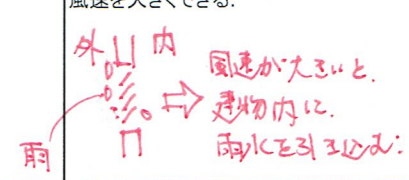 風速を大きくできる.
外 内
風速が大きいと、
建物内に、
雨水を引き込む:
雨